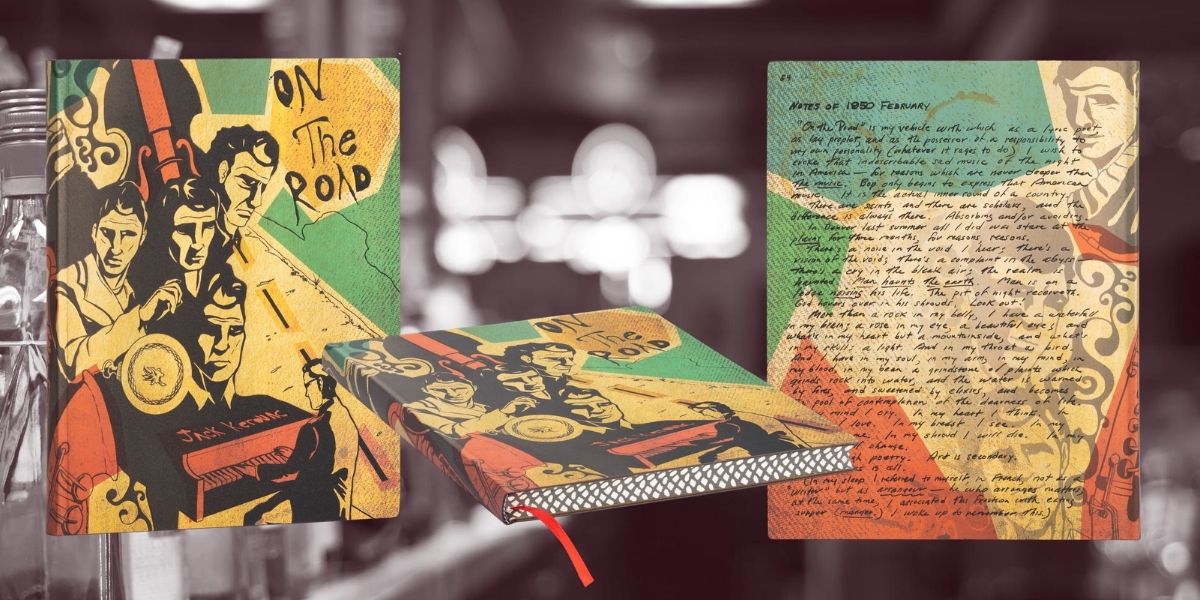 ON
The
ROAD
JACK KEROUAC
ON
The
ROAD
64
NOTES OF 1950 FEBRUARY
"On the Road" is my vehicle with which as a lyric poet,
as lay prophet, and as the possessor of a responsibility to
my own personality (whatever it rages to do) I wish to
evoke that indescribable sad music of the night
in America — for reasons which are never deeper than
the music. Bop only begins to express that American
music. It is the actual inner sound of a country.
There are saints, and there are scholars, and the
difference is always there. Absorbing and/or avoiding.
In Denver last summer all I did was stare at the
plains for three months, for reasons, reasons.
There's a noise in the void I hear; there's a
vision of the void; there's a complaint in the abyss —
there's a cry in the bleak air; the realm is
haunted. Man haunts the earth. Man is on a
ledge his life. The pit of night receiveth.
God hovers over in his shrouds. Look out!
More than a rock in my belly, I have a waterfall
in my brain; a rose in my eye, a beautiful eye; and
what's in my heart but a mountainside, and what's
in my skull: a light. And in my throat a bird.
And I have in my soul, in my arm, in my mind, in
my blood, in my bean a grindstone of plaints which
grinds rock into water, and the water is warmed
by fires, and sweetened by elixirs, and becomes
pool of contemplation of the dearness of life.
mind I cry. In my heart I think. In
love. In my breast I see. In my
In my shroud I will die. In my
change.
poetry. Art is secondary.
is all.
(In my sleep I referred to myself in French, not as a
"writer" but as arranger — he who arranges matters;
at the same time, I associated this function with eating
supper (manger.) I woke up to remember this.)